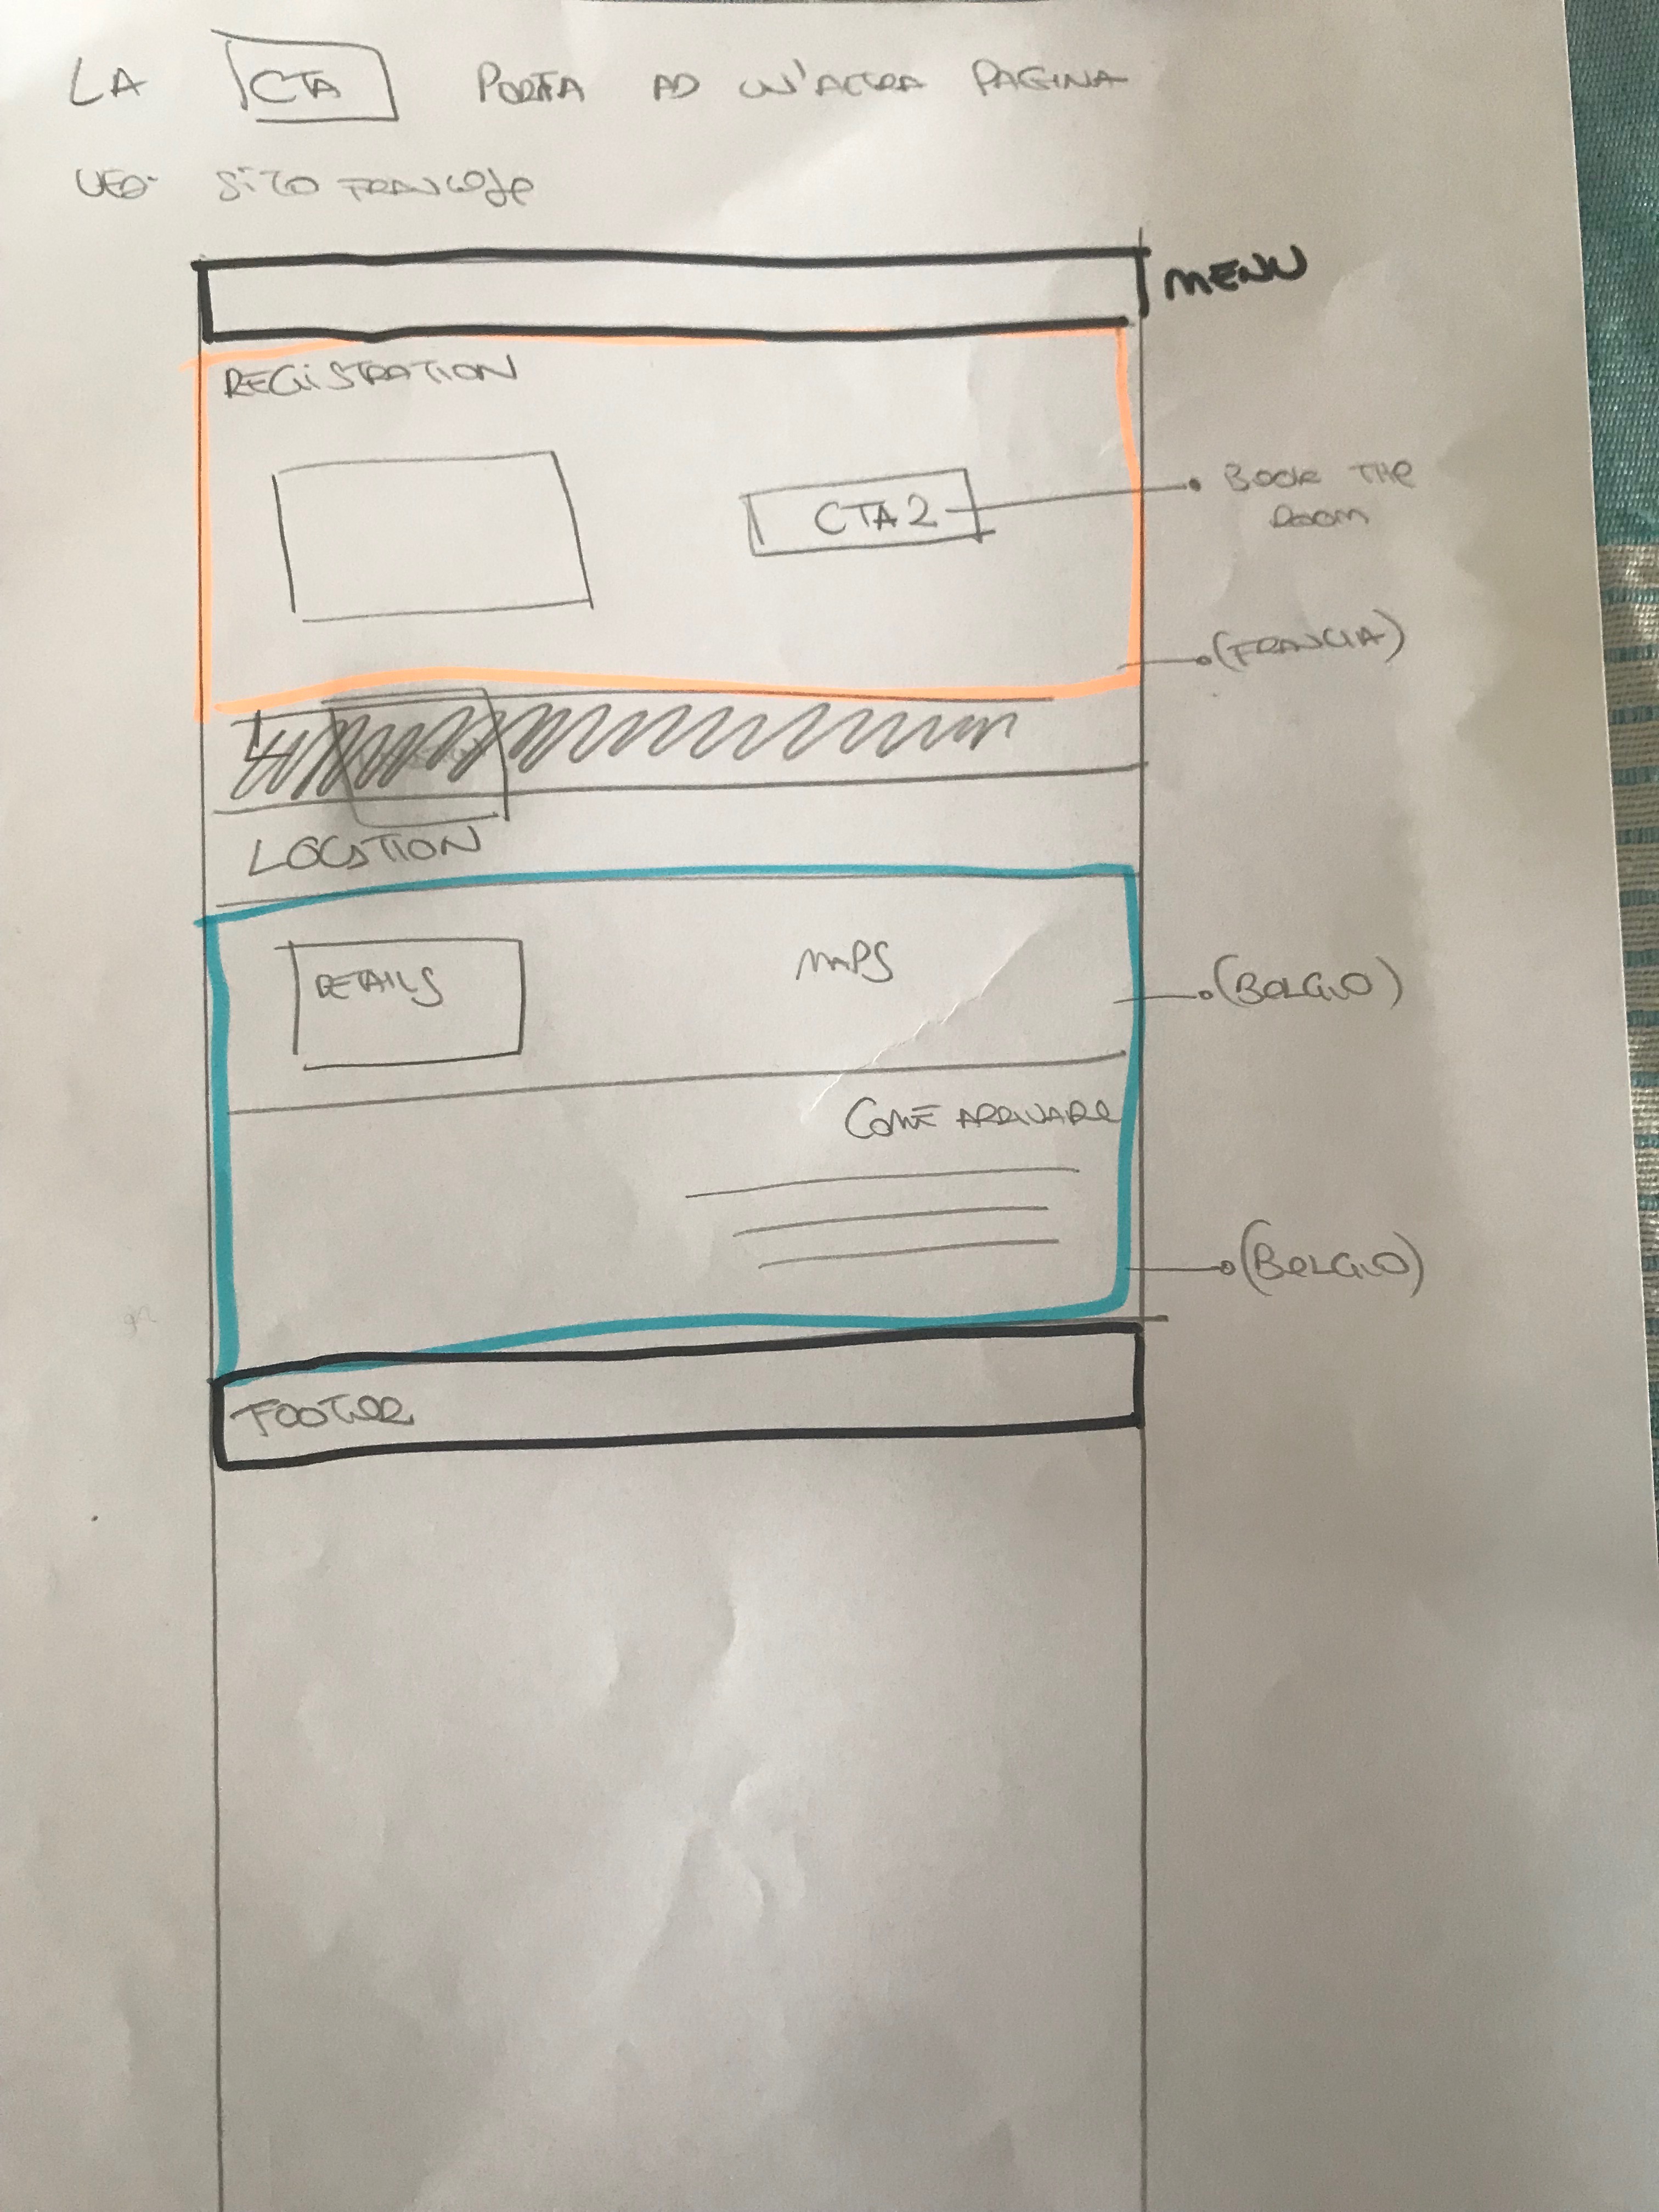 LA CTA PORTA AD UN'ALTRA PAGINA
VED. SITO FRANCESE
MENU
REGISTRATION
CTA 2
BOOK THE
ROOM
(FRANCIA)
LOCATION
DETAILS
MAPS
(BELGIO)
COME ARRIVARE
(BELGIO)
FOOTER